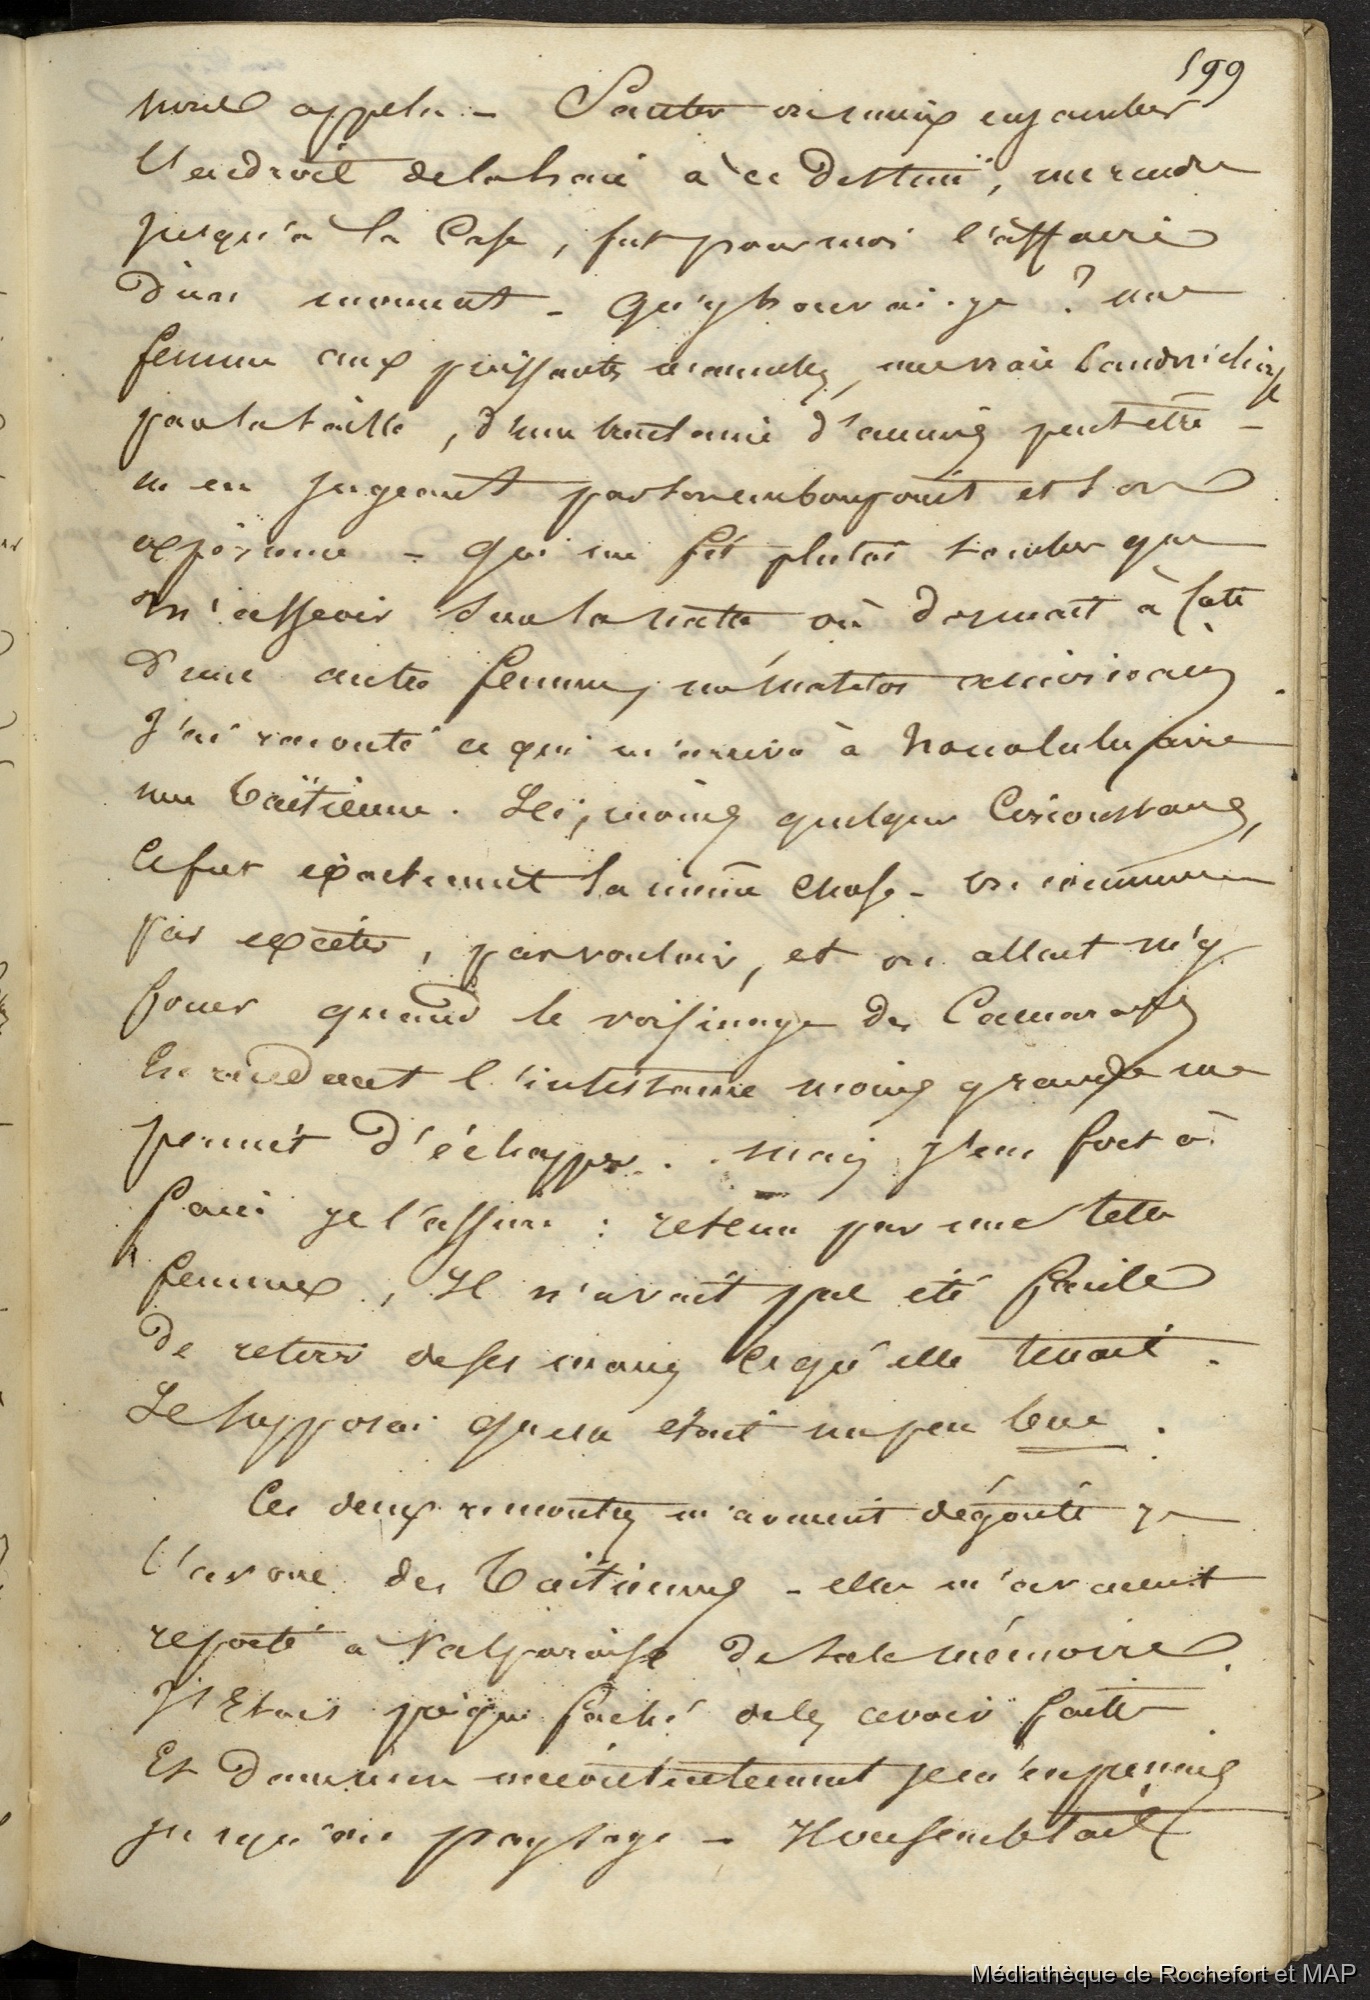 199
nouvel appela – Sauter ou mieux enjamber
l'endroit de la haie à ce destiné, me rendre
jusqu'à la case, fut pour moi l'affaire
d'un moment – qu'y trouvai-je ? une
femme aux puissantes mamelles, une vraie
par la taille, d'une trentaine d'années peut être –
m en jugeant par son embonpoint et son
– qui me fit plutot tomber que
m'asseoir sur la natte où dormait à coté
d'une autre femme, un matelot américain.
J'ai raconté ce qui m'arriva à honolulu avec
une taïtienne. Ici, moins quelques circonstances,
ce fut exactement la même chose – on commença
par exciter, par vouloir, et on allait m'y
forcer quand le voisinage des camarades
en rendant l'insistance moins grande me
permit d'échapper... mais j'eus fort à
faire je l'assure : retenu par une telle
femme, il n'avait pas été facile
de retirer de ses mains ce qu'elle tenait.
Je supposai qu'elle était un peu bue.
Ces deux rencontres m'avaient dégouté je
l'avoue des taïtiennes – elles m'avaient
reporté a Valparaiso de sale mémoire.
J'étais presque faché de les avoir faites
Et dans mon mécontentement je m'en pris
jusqu'au paysage – Il me semblait